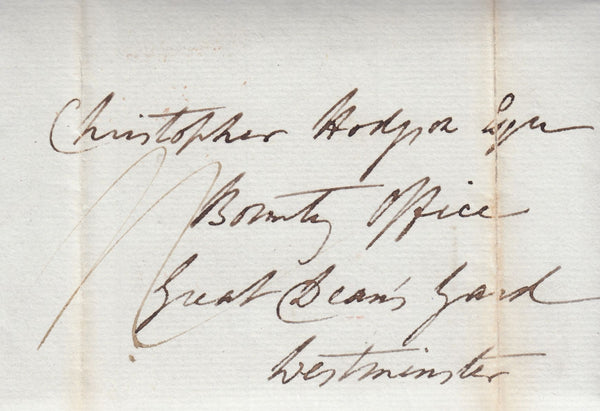 Christopher Hodgson Esqre
Bounty Office
Great Dean's Yard
Westminster